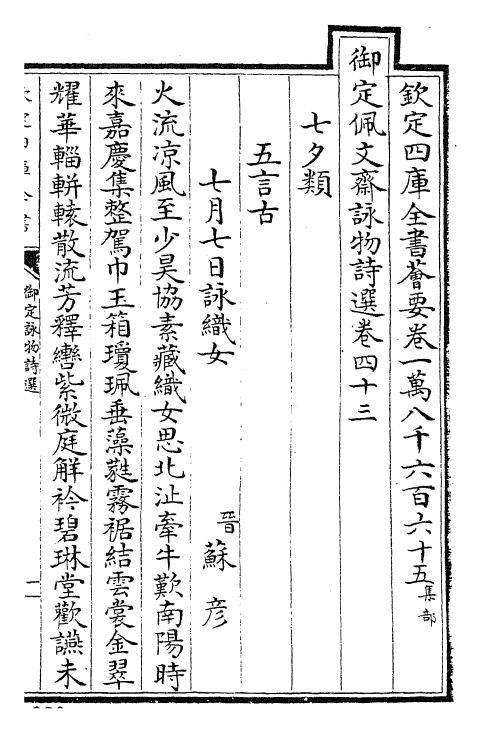 欽定四庫全書薈要卷一萬八千六百六十五集部
御定佩文齋詠物詩選卷四十三
七夕類
五言古
七月七日詠織女
晉蘇彦
火流凉風至少昊協素藏織女思北沚牽牛歎南陽時
來嘉慶集整駕巾玉箱瓊珮垂藻蕤霧裾結雲裳金翠
耀華輜軿轅散流芳釋轡紫微庭解衿碧琳堂歡讌未
御定詠物詩選
一